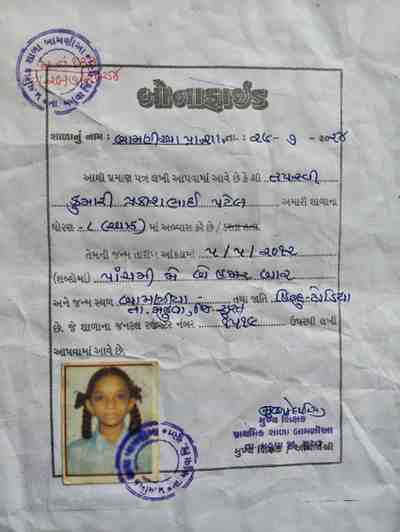 બોનાફાઈડ
શાળાનું નામ : બામણીયા પ્રા.શા. તા. : ૨૫ - ૭ - ૨૦૨૪
આથી પ્રમાણ પત્ર લખી આપવામાં આવે છે કે શ્રી / તપસ્વી
કુમારી પ્રકાશભાઈ પટેલ અમારી શાળાના
ધોરણ - ૮ (આઠ) માં અભ્યાસ કરે છે /
તેમની જન્મ તારીખ આંકડામાં ૫ / ૫ / ૨૦૧૨
(શબ્દોમાં) પાંચમી મે બે હજાર બાર
અને જન્મ સ્થળ બામણીયા - તથા જાતિ હિન્દુ-ધોડિયા
તા. મહુવા, જિ. સુરત
છે. જે શાળાના જનરલ રજીસ્ટર નંબર ૧૫૧૯ ઉપરથી લખી
આપવામાં આવે છે.
મુખ્ય શિક્ષક
પ્રાથમિક શાળા બામણીઆ
મુખ્ય શિક્ષક / આચાર્યશ્રી